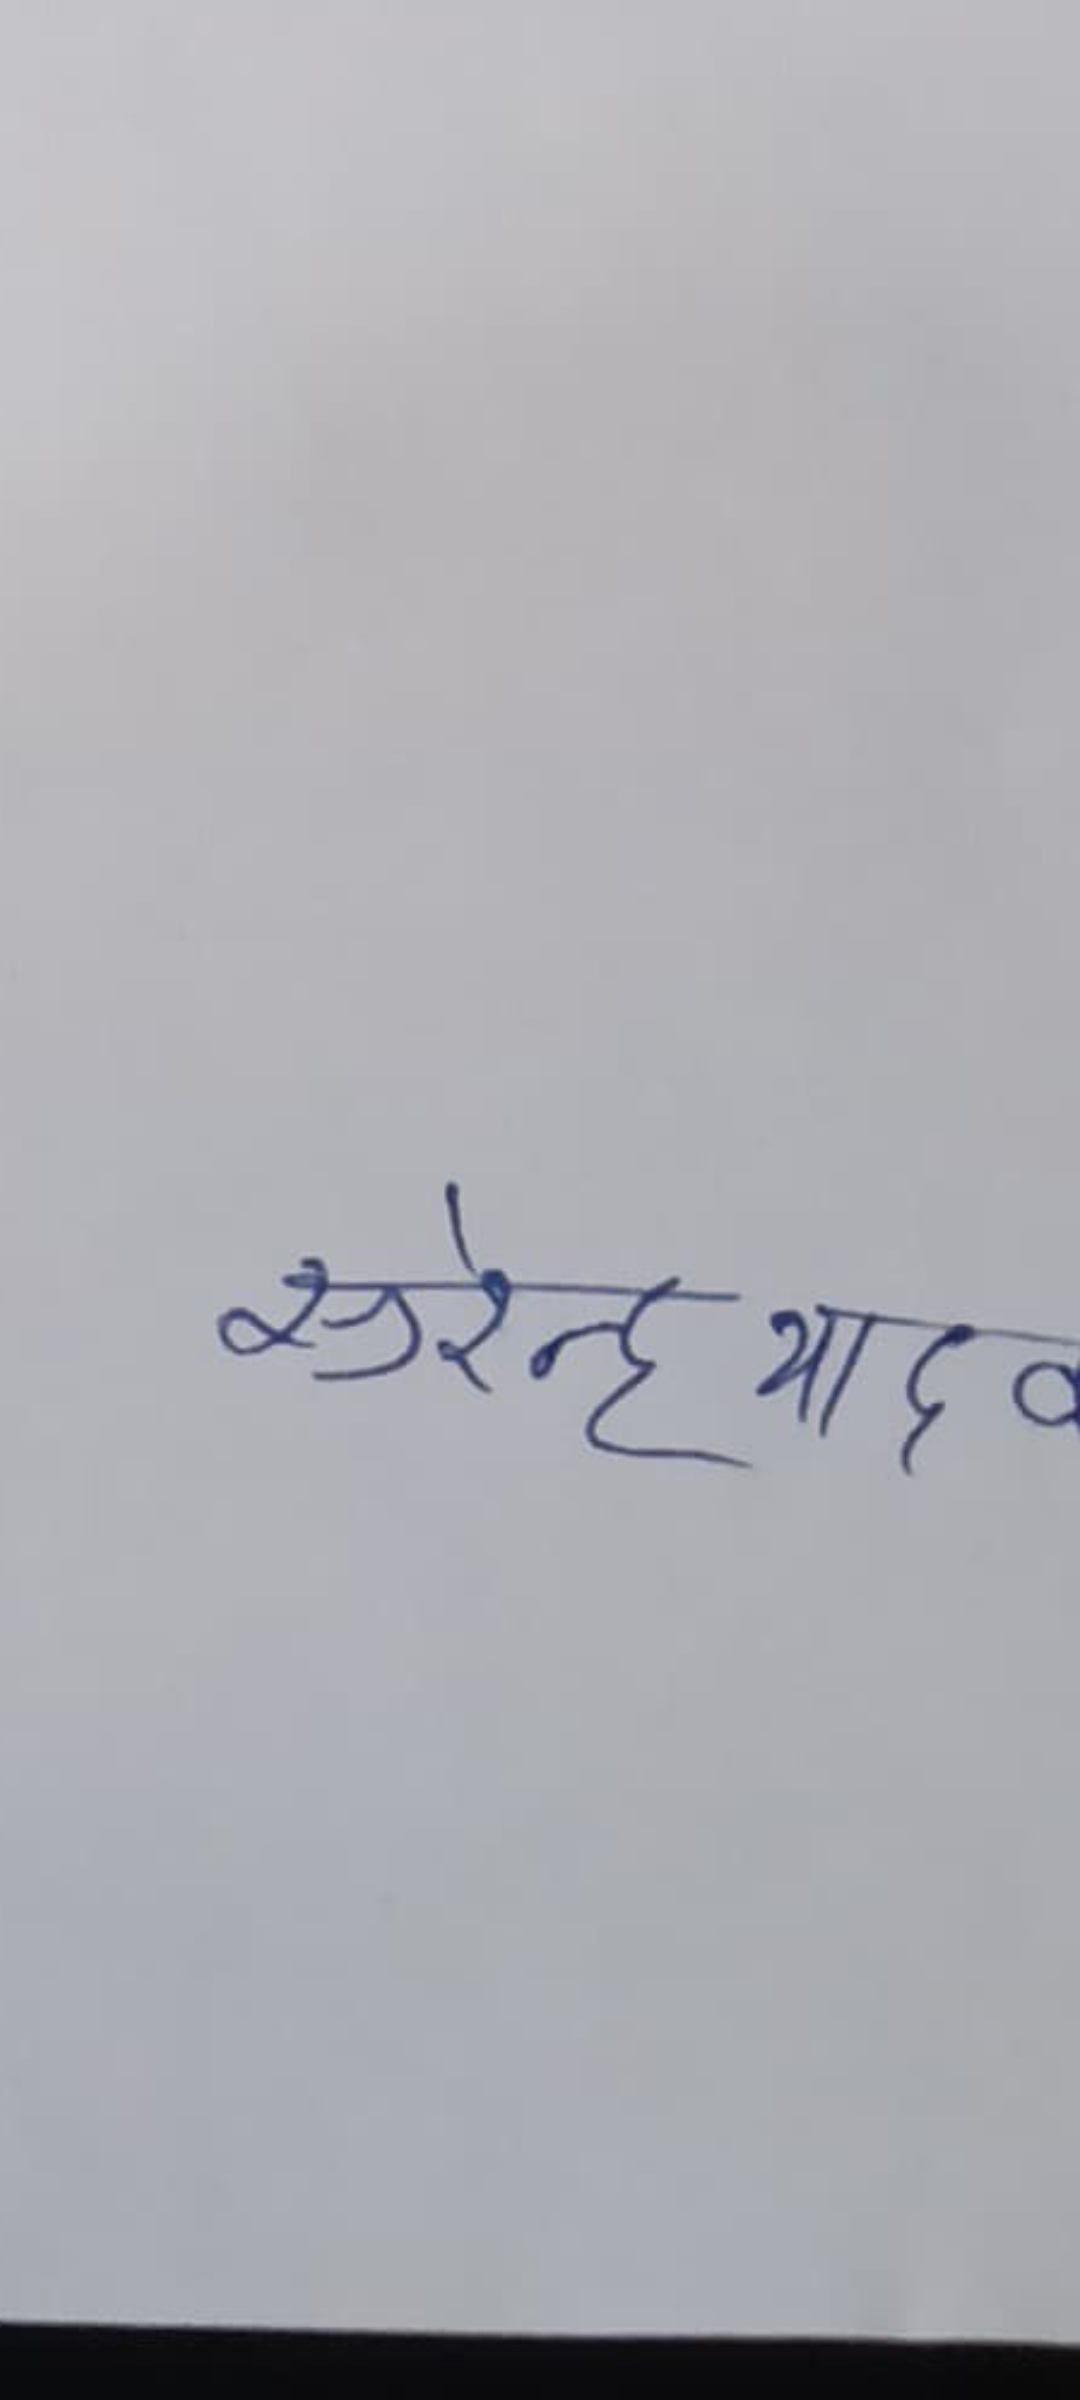 सुरेन्द्र यादव